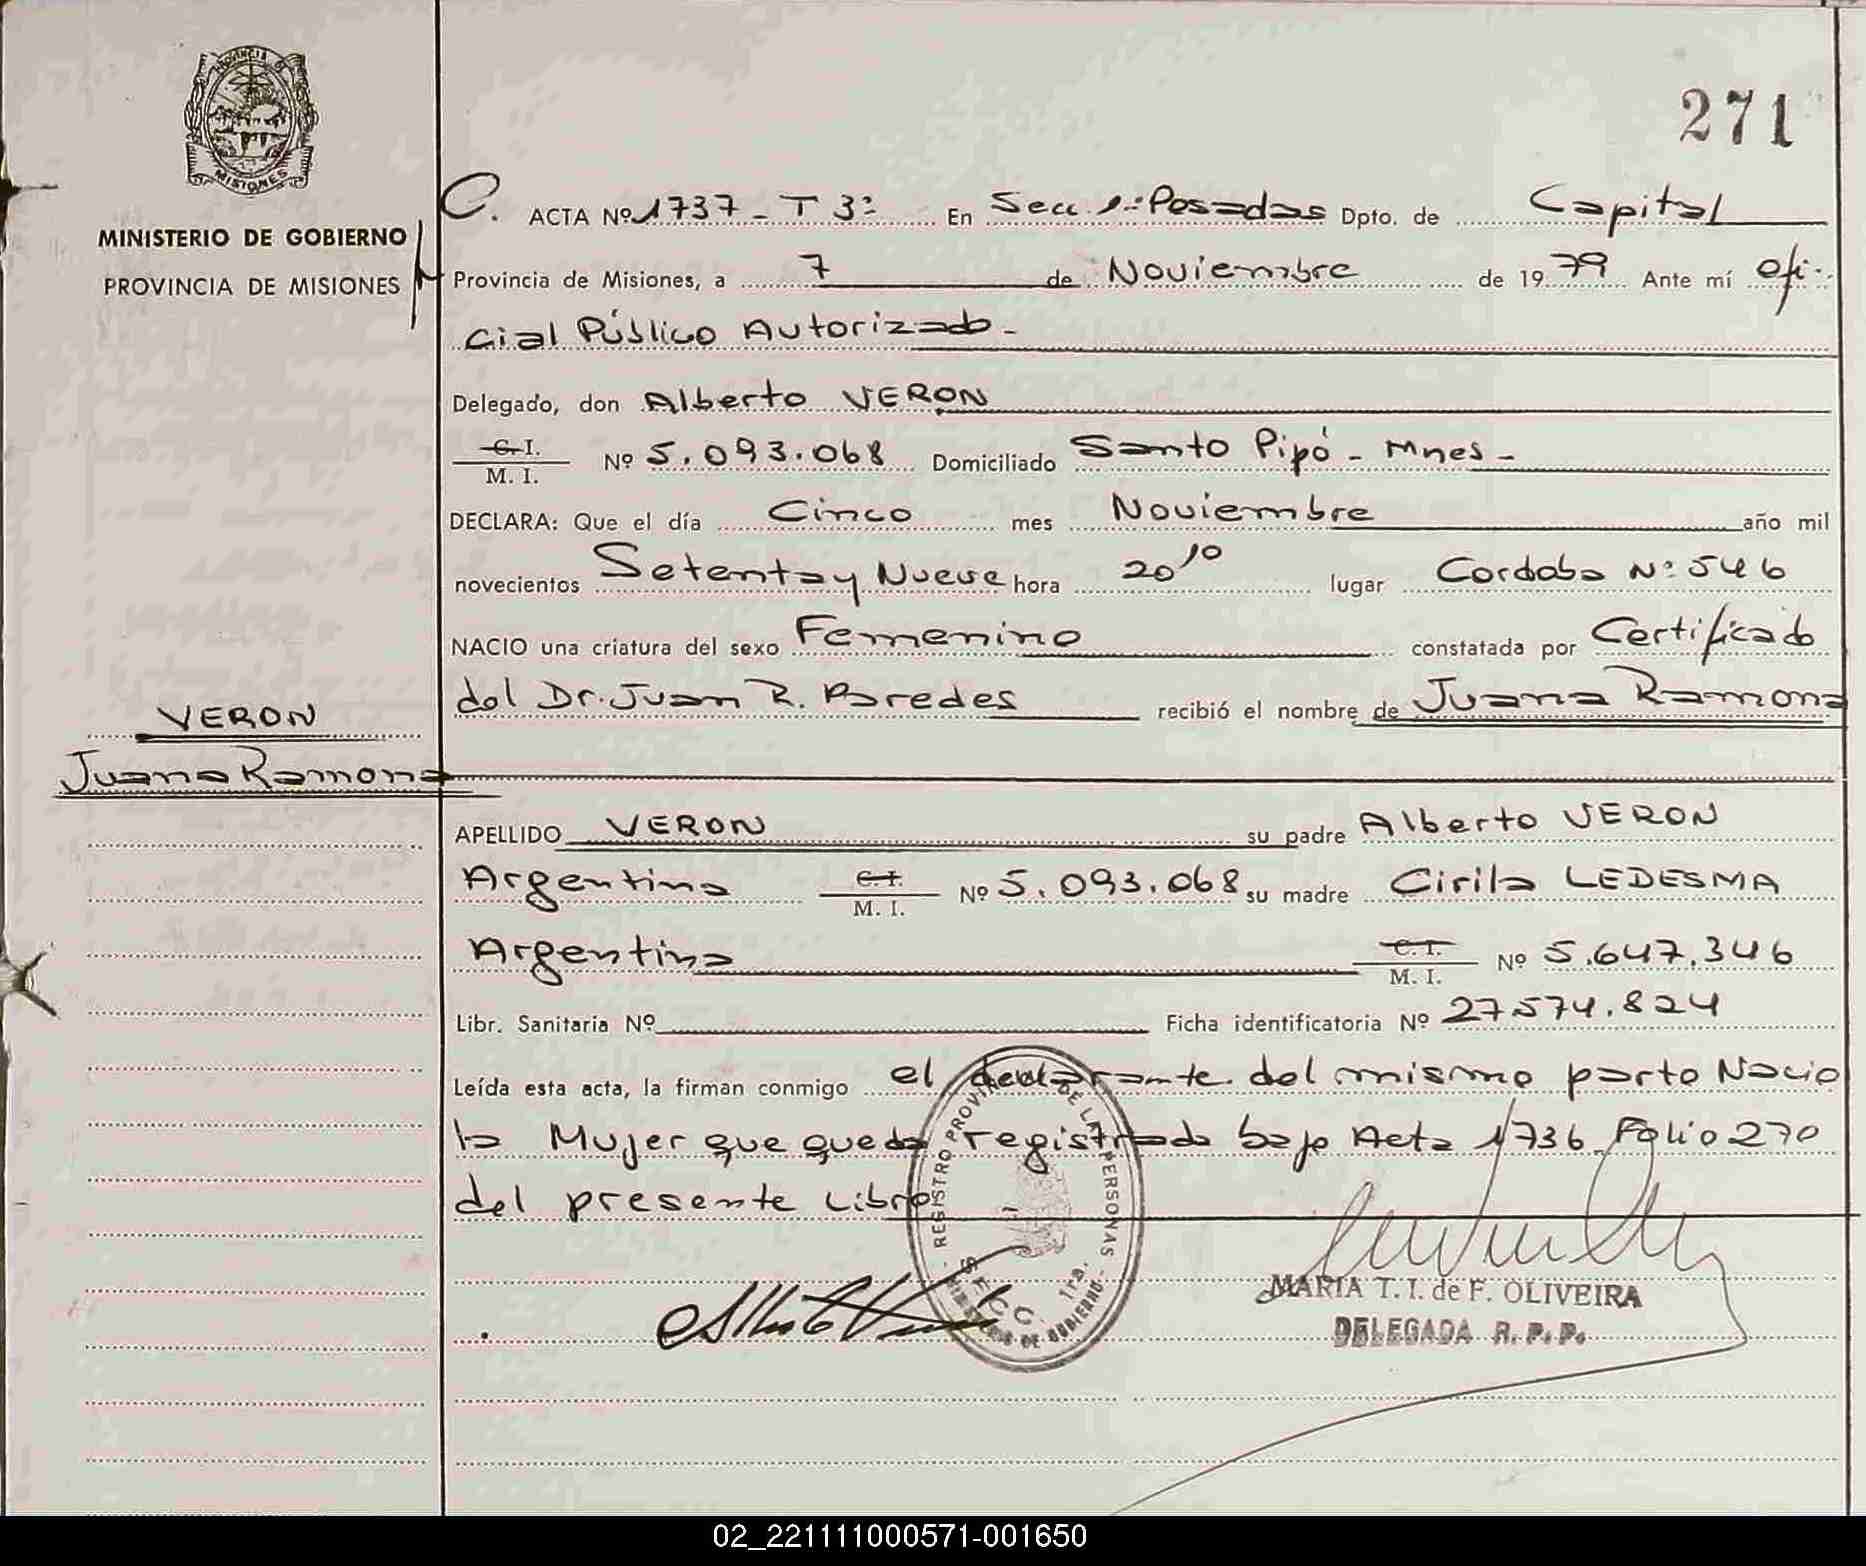 PROVINCIA DE
MISIONES
271
MINISTERIO DE GOBIERNO
PROVINCIA DE MISIONES
C. ACTA Nº 1737 - T 3º En Secc. 1ª Posadas Dpto. de Capital
Provincia de Misiones, a 7 de Noviembre de 1979 Ante mí Ofi-
cial Público Autorizado -
Delegado, don Alberto VERON
C. I. / M. I. Nº 5.093.068 Domiciliado Santo Pipó - Mnes -
DECLARA: Que el día Cinco mes Noviembre año mil
novecientos Setenta y Nueve hora 20 10 lugar Cordoba Nº 546
NACIO una criatura del sexo Femenino constatada por Certificado
del Dr. Juan R. Paredes recibió el nombre de Juana Ramona
VERON
Juana Ramona
APELLIDO VERON su padre Alberto VERON
Argentina C. I. / M. I. Nº 5.093.068 su madre Cirila LEDESMA
Argentina C. I. / M. I. Nº 5.647.346
Libr. Sanitaria Nº Ficha identificatoria Nº 27.574.824
Leída esta acta, la firman conmigo el declarante. del mismo parto Nacio
la Mujer que queda registrada bajo Acta 1736 Folio 270
del presente Libro
REGISTRO PROVINCIAL DE LAS PERSONAS
SECC. 1ra.
MINISTERIO DE GOBIERNO
MARIA T. I. de F. OLIVEIRA
DELEGADA R. P. P.
02_221111000571-001650